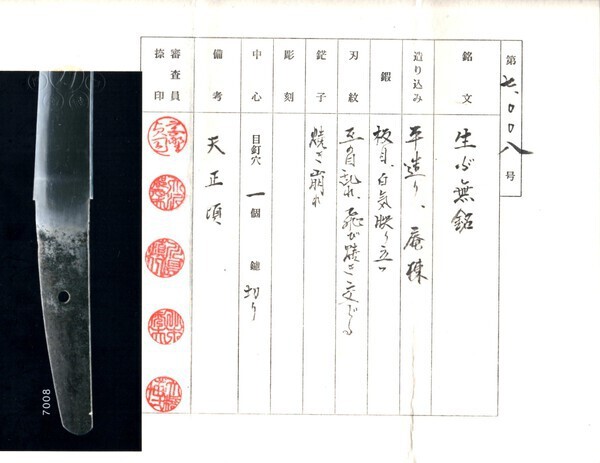 第七、〇〇八号
銘文 生心無銘
造り込み 平造り、庵棟
鍛 板目、白気映り立つ
刃紋 互の目乱れ、飛び焼き交じる
鋩子 焼き崩れ
彫刻
中心 目釘穴 一個 鑢 切り
備考 天正頃
審査員捺印
7008